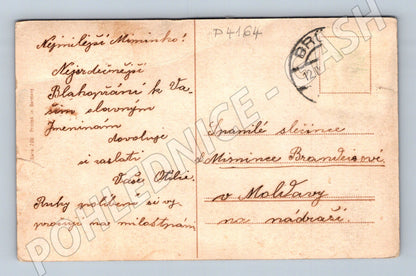 Nejmilejší Miminko!
Nejsrdečnější
Blahopřání k Va-
šim slavným
Jmeninám
dovoluje
si zaslati
Vaše Otilie.
Ruky políbení si vy-
prošuje na milostpaní
P4164
BRO
12.IV
Slovutné slečince
Mimince Brandeisové
v Moldavy
na nádraží.
POHLEDNICE - SASH